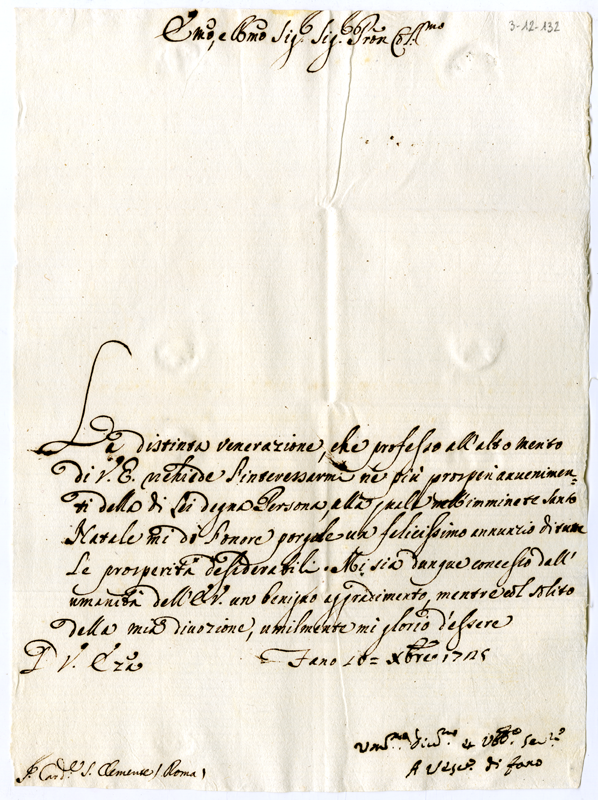 Emo, e Rmo Sig.r Sig.r Pron Col.mo
3-12-132
La distinta venerazione, che professo all'alto merito
di V. E. richiede l'interessarmi ne più prosperi avvenimen-
ti della di Lei degna Persona, alla quale nell'imminete Santo
Natale mi dò l'onore porgerle un felicissimo annunzio di tutte
le prosperità desiderabili. Mi sia dunque concesso dall'
umanità dell'E.V. un benigno aggradimento, mentre col solito
della mia divozione, umilmente mi glorio d'essere
D V. Eza
Fano Xbre
Um.mo Div.mo Obb.o Se.re
A Vesc.o di Fano
Card.e S. Clemente (Roma)